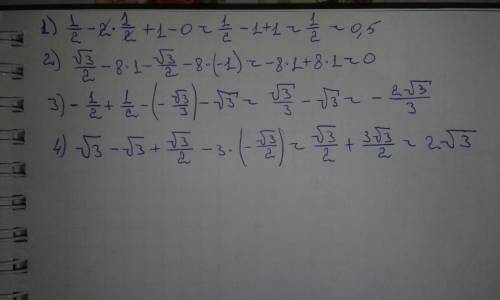 1) 1/2 - 2·1/2 + 1 - 0 = 1/2 - 1 + 1 = 1/2 = 0,5
2) √3/2 - 8·1 - √3/2 - 8·(-1) = -8·1 + 8·1 = 0
3) -1/2 + 1/2 - (-√3/3) - √3 = √3/3 - √3 = -2√3/3
4) √3 - √3 + √3/2 - 3·(-√3/2) = √3/2 + 3√3/2 = 2√3